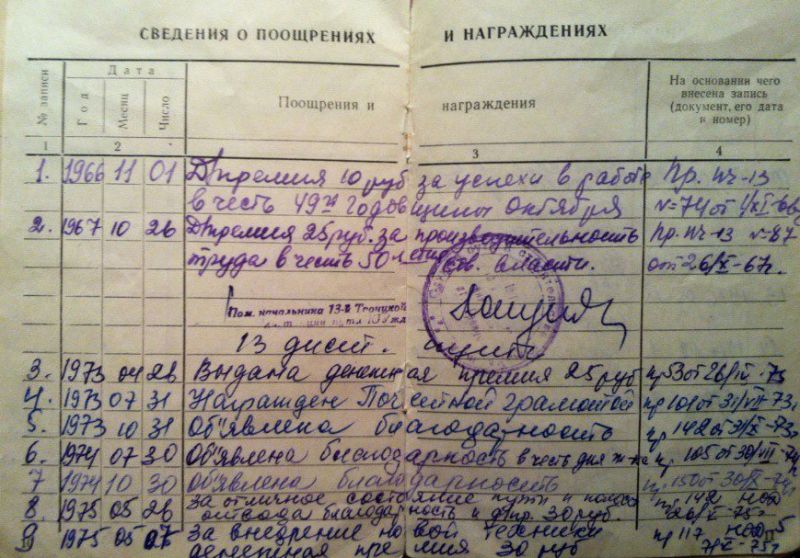 СВЕДЕНИЯ О ПООЩРЕНИЯХ И НАГРАЖДЕНИЯХ
№ записи
Дата
Год
Месяц
Число
Поощрения и награждения
На основании чего
внесена запись
(документ, его дата
и номер)
1 2 3 4
1. 1966 11 01 Премия 10 руб за успехи в работе Пр. ПЧ-13
в честь 49й годовщины Октября №-74 от
2. 1967 10 26 Премия 25 руб. за производительность Пр. ПЧ-13 №-87
труда в честь 50 летия Сов. власти. от 26/X-67г.
Пом. начальника 13-й Троицкой
дист. пути ЮУжд
13 дист. пути
3. 1973 04 26 Выдана денежная премия 25 руб пр 53 от 26/IV-73
4. 1973 07 31 Награжден Почетной грамотой пр 101 от 31/VII-73
5. 1973 10 31 Объявлена благодарность пр 142 от 31/X-73
6. 1974 07 30 Объявлена благодарность в честь дня ж-ка пр 105 от 30/VII-74
7 1974 10 30 объявлена благодарность пр 150 от 30/X-74
8. 1975 05 26 за отличное состояние пути и полосы пр 142
отвода благодарность и пр. 30 руб. 26/V-75г
9 1975 05 07 за внедрение новой техники пр 117
денежная премия 30 руб